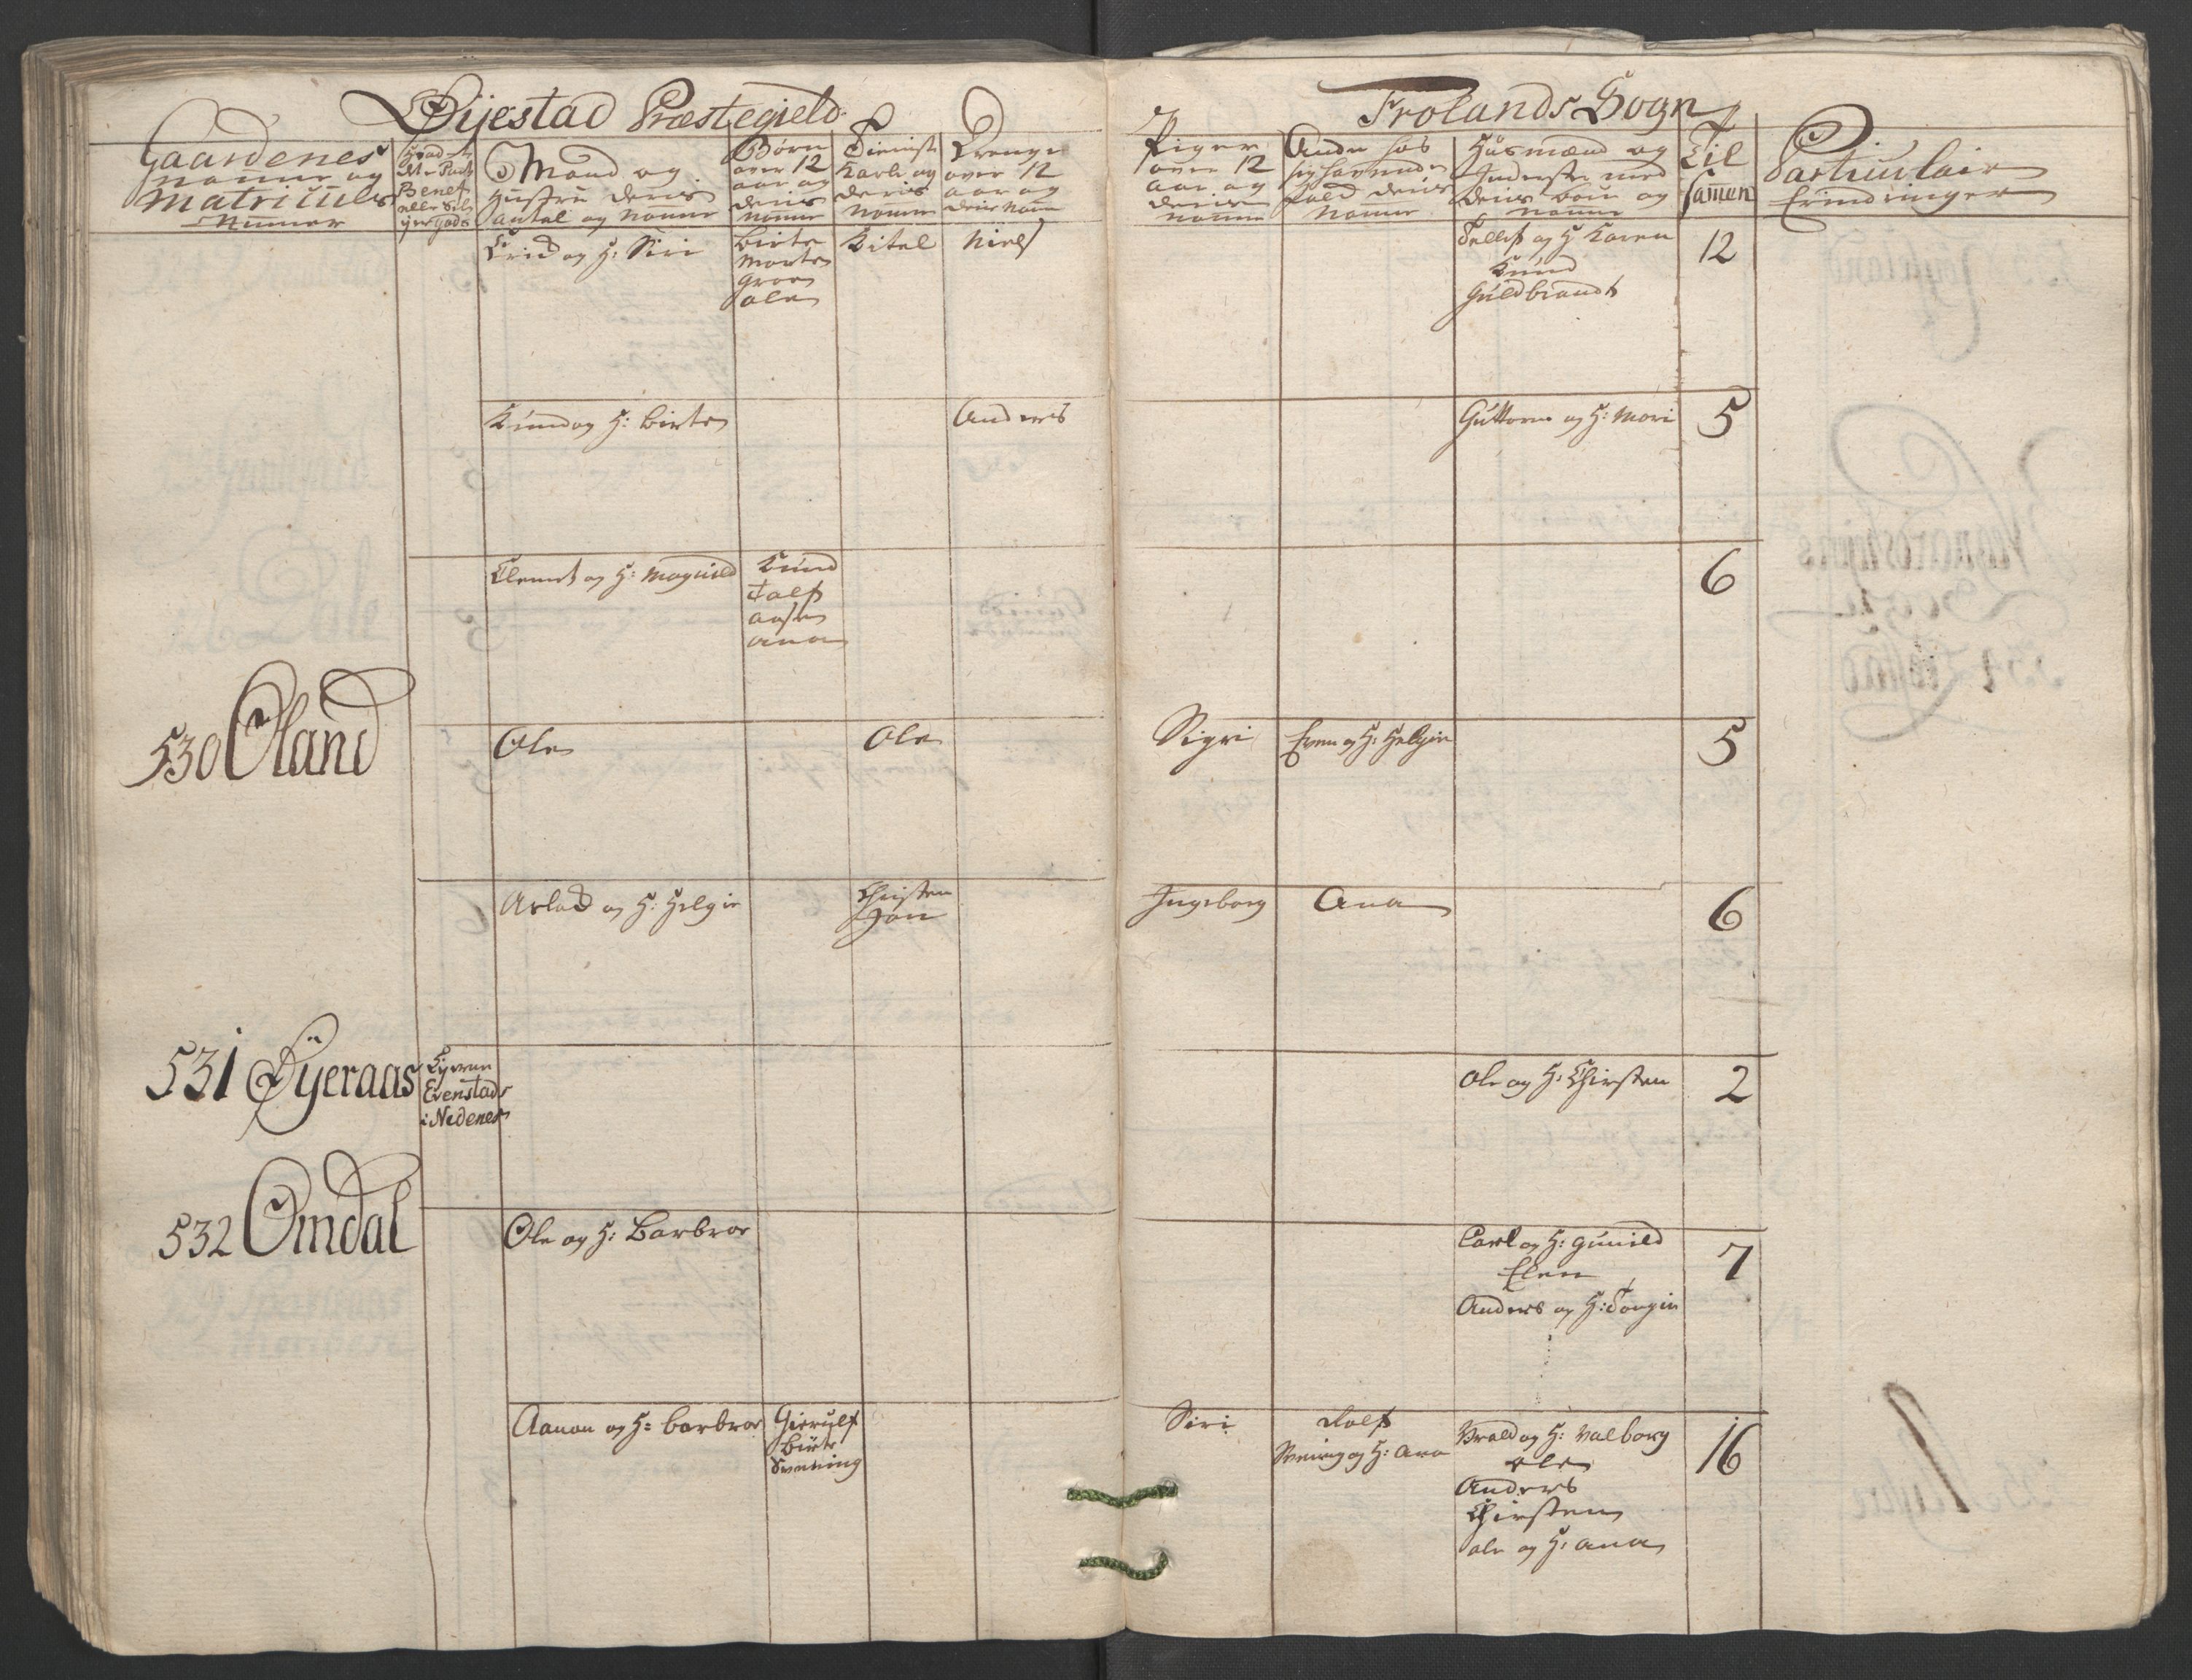 Øijestad Præstegield
Frolands Sogn
Gaardenes
Nafne og
Matriculs
Numer
Mand og
Hustru deris
antal og Nafne
Børn
over 12
aar og
deris
Nafne
Tieniste
Karle og
deris
Nafne
Drenge
over 12
aar og
deris Nafne
Piger
over 12
aar og
deris
Nafne
Andre hos
deris
Nafne
Huusmænd og
Inderste med
deris børn og
Nafne
Til
Samen
Particulair
Erindringer
og H: Siri
Birte
Marte
Groe
Ole
Kitel
Niels
Tellef og H Karen
Knud
Guldbrandt
12
Knud og H: Birte
Anders
Guttorm og H: Mari
5
Clemet og H: Magnild
Knud
Talf
Aase
Ana
6
530 Øland
Ole
Ole
Sigri
Even og H: Helgie
5
Aslad og H: Helgie
Christen
Jon
Ingeborg
Ana
6
531 Øijeraas
Evenstads
i Nedenes
Ole og H: Chirsten
2
532 Omdal
Ole og H: Barbroe
Carl og H: Gunild
Elen
Anders og H: Torgie
7
Aanon og H: Barbroe
Gierulf
Birte
Svening
Siri
Rolf
Svening og H: Ana
Vrald og H: Valborg
Ole
Anders
Chirsten
Ole og H: Ana
16